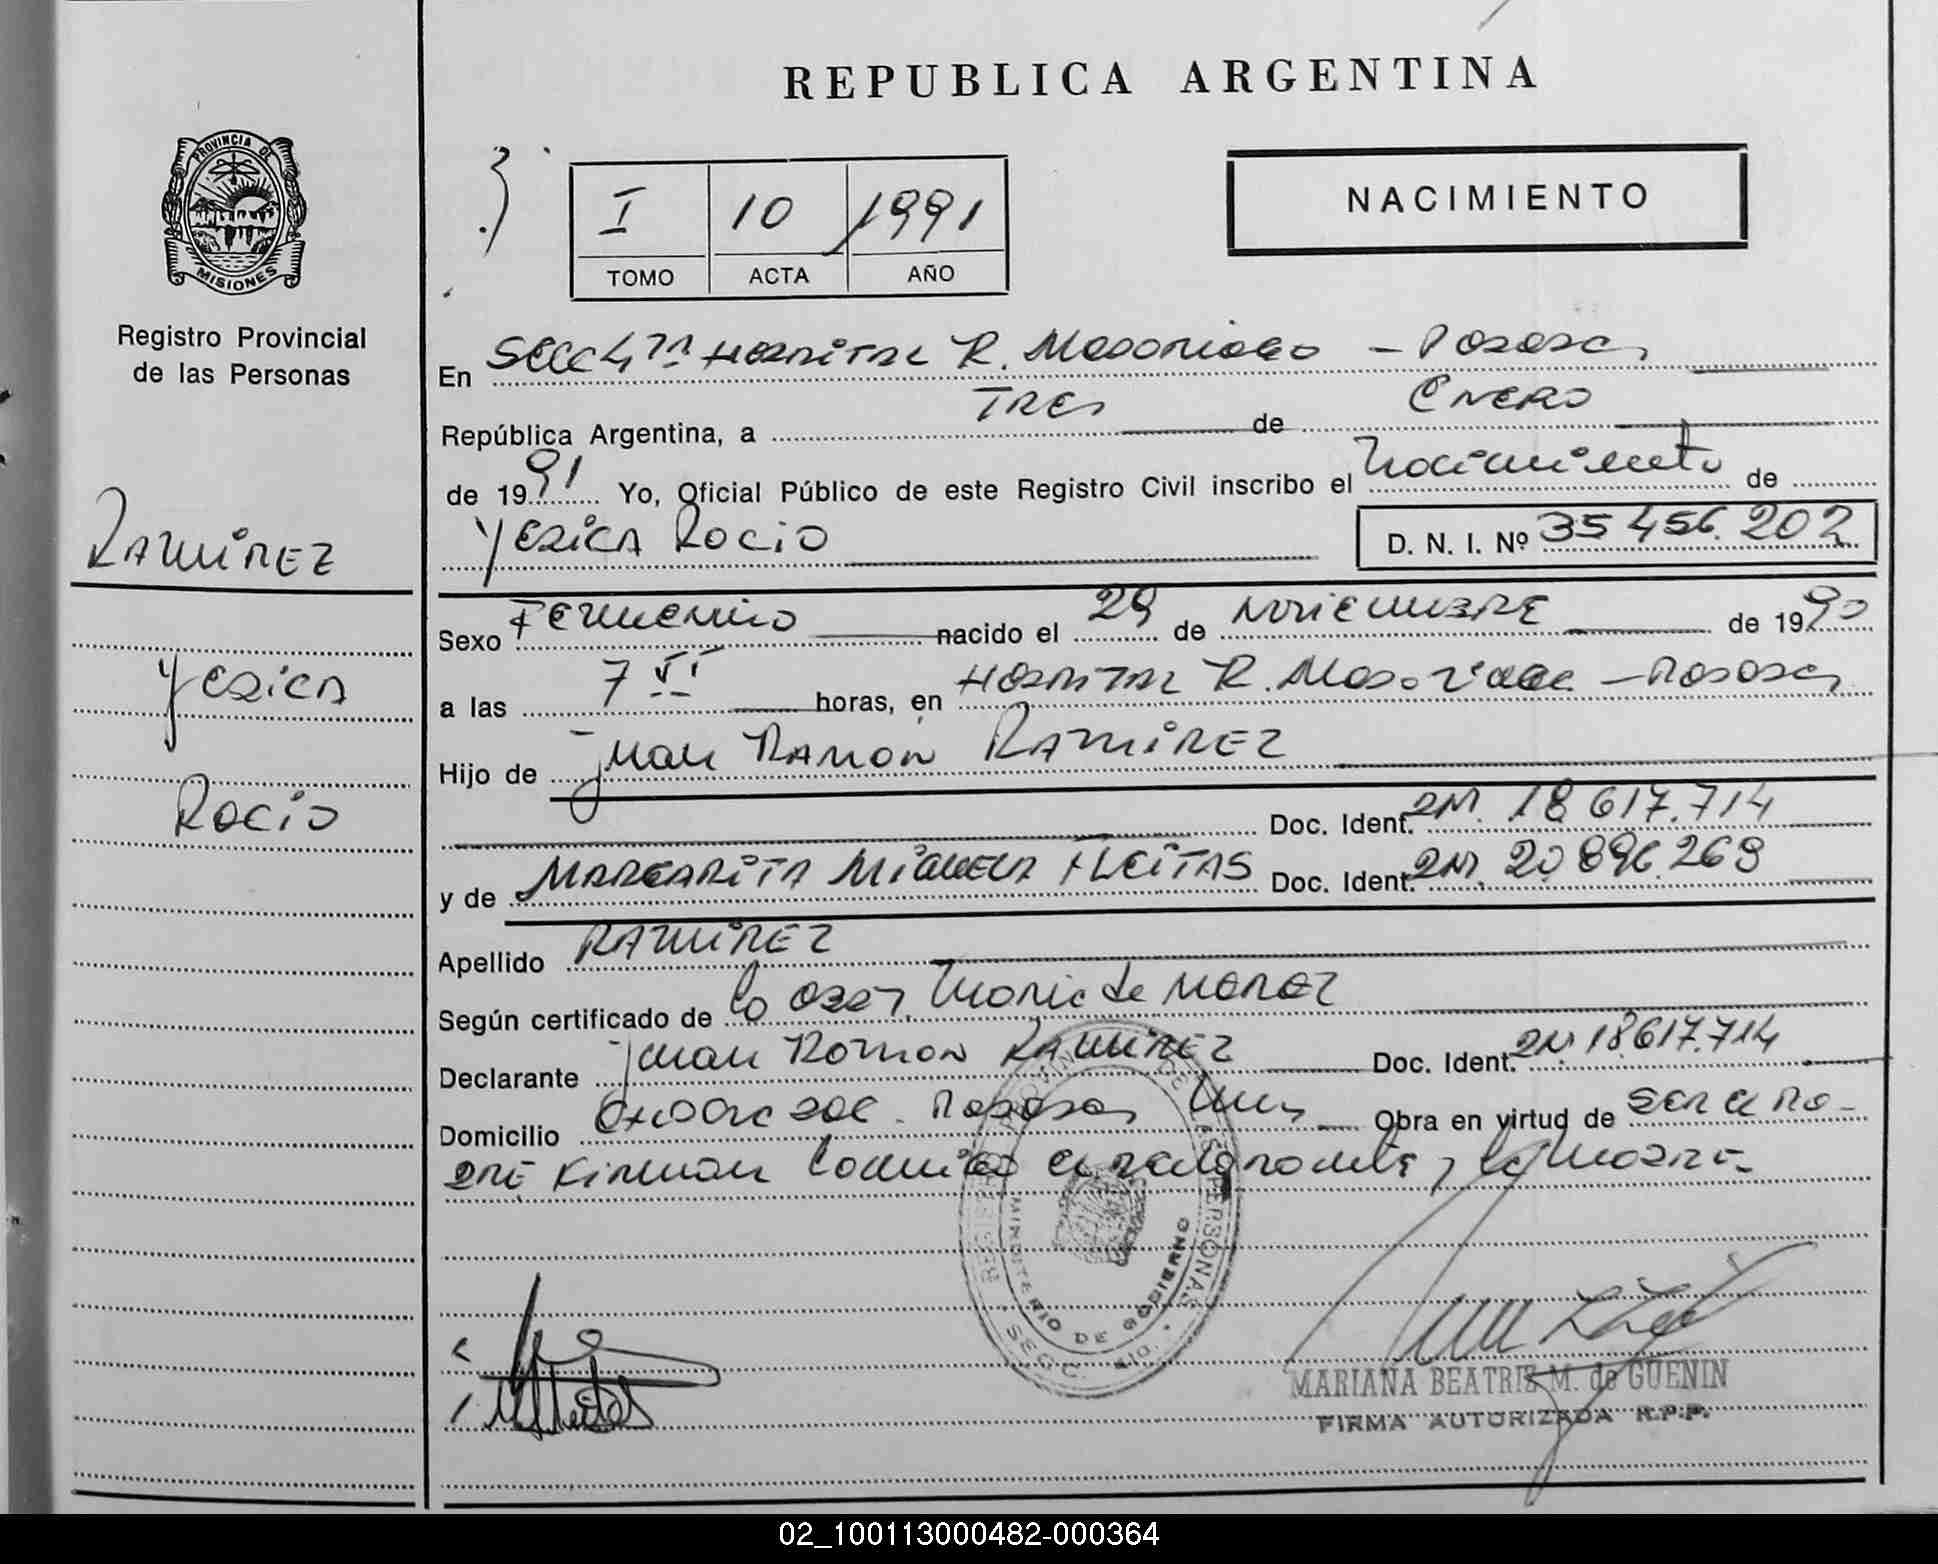 REPUBLICA ARGENTINA
PROVINCIA DE
MISIONES
Registro Provincial
de las Personas
I 10 1991
TOMO ACTA AÑO
NACIMIENTO
En SECC 4ta HOSPITAL R. Madariaga - Posadas
República Argentina, a TRES de ENERO
de 1991 Yo, Oficial Público de este Registro Civil inscribo el Nacimiento de
YESICA ROCIO D. N. I. Nº 35 456.202
RAMIREZ
YESICA
ROCIO
Sexo FEMENINO nacido el 29 de NOVIEMBRE de 1990
a las 7 horas, en HOSPITAL R. Madariaga - Posadas
Hijo de Juan RAMON RAMIREZ
Doc. Ident. DNI. 18 617.714
y de MARGARITA MIQUELA FLEITAS Doc. Ident. DNI. 20 896.269
Apellido RAMIREZ
Según certificado de la Obst.
Declarante Juan Ramon RAMIREZ Doc. Ident. DNI 18.617.714
Domicilio Posadas Mnes Obra en virtud de SER el PA-
DRE Firman conmigo el declarante y la MADRE-
MINISTERIO DE GOBIERNO
MARIANA BEATRIZ M. de GUENIN
FIRMA AUTORIZADA R.P.P.
02_100113000482-000364